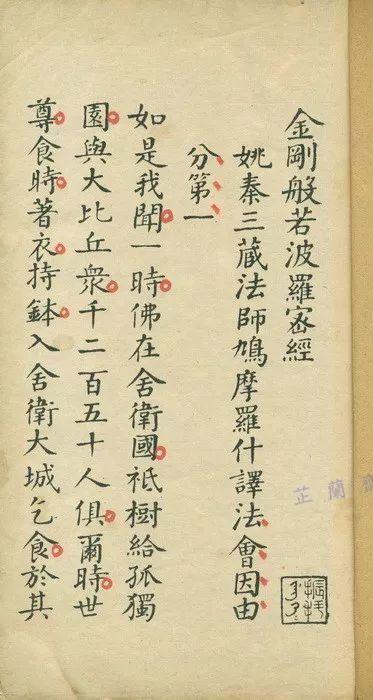 金剛般若波羅密經
姚秦三藏法師鳩摩羅什譯法會因由
分第一
如是我聞一時佛在舍衛國祇樹給孤獨
園與大比丘衆千二百五十人俱爾時世
尊食時著衣持鉢入舍衛大城乞食於其
芷蘭